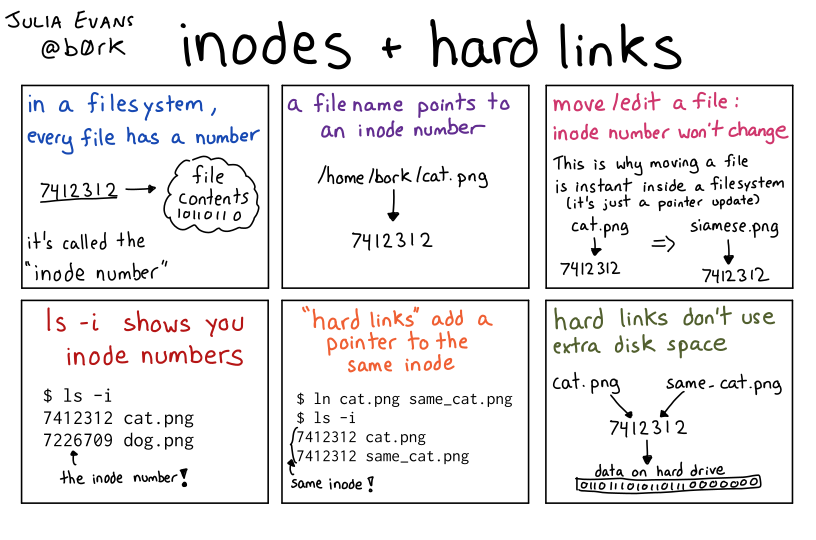 JULIA EVANS
@b0rk
inodes + hard links
in a filesystem,
every file has a number
7412312
file
contents
10110110
it's called the
"inode number"
a filename points to
an inode number
/home/bork/cat.png
7412312
move/edit a file:
inode number won't change
This is why moving a file
is instant inside a filesystem
(it's just a pointer update)
cat.png => siamese.png
7412312 7412312
ls -i shows you
inode numbers
$ ls -i
7412312 cat.png
7226709 dog.png
the inode number!
"hard links" add a
pointer to the
same inode
$ ln cat.png same_cat.png
$ ls -i
7412312 cat.png
7412312 same_cat.png
same inode!
hard links don't use
extra disk space
cat.png same-cat.png
7412312
data on hard drive